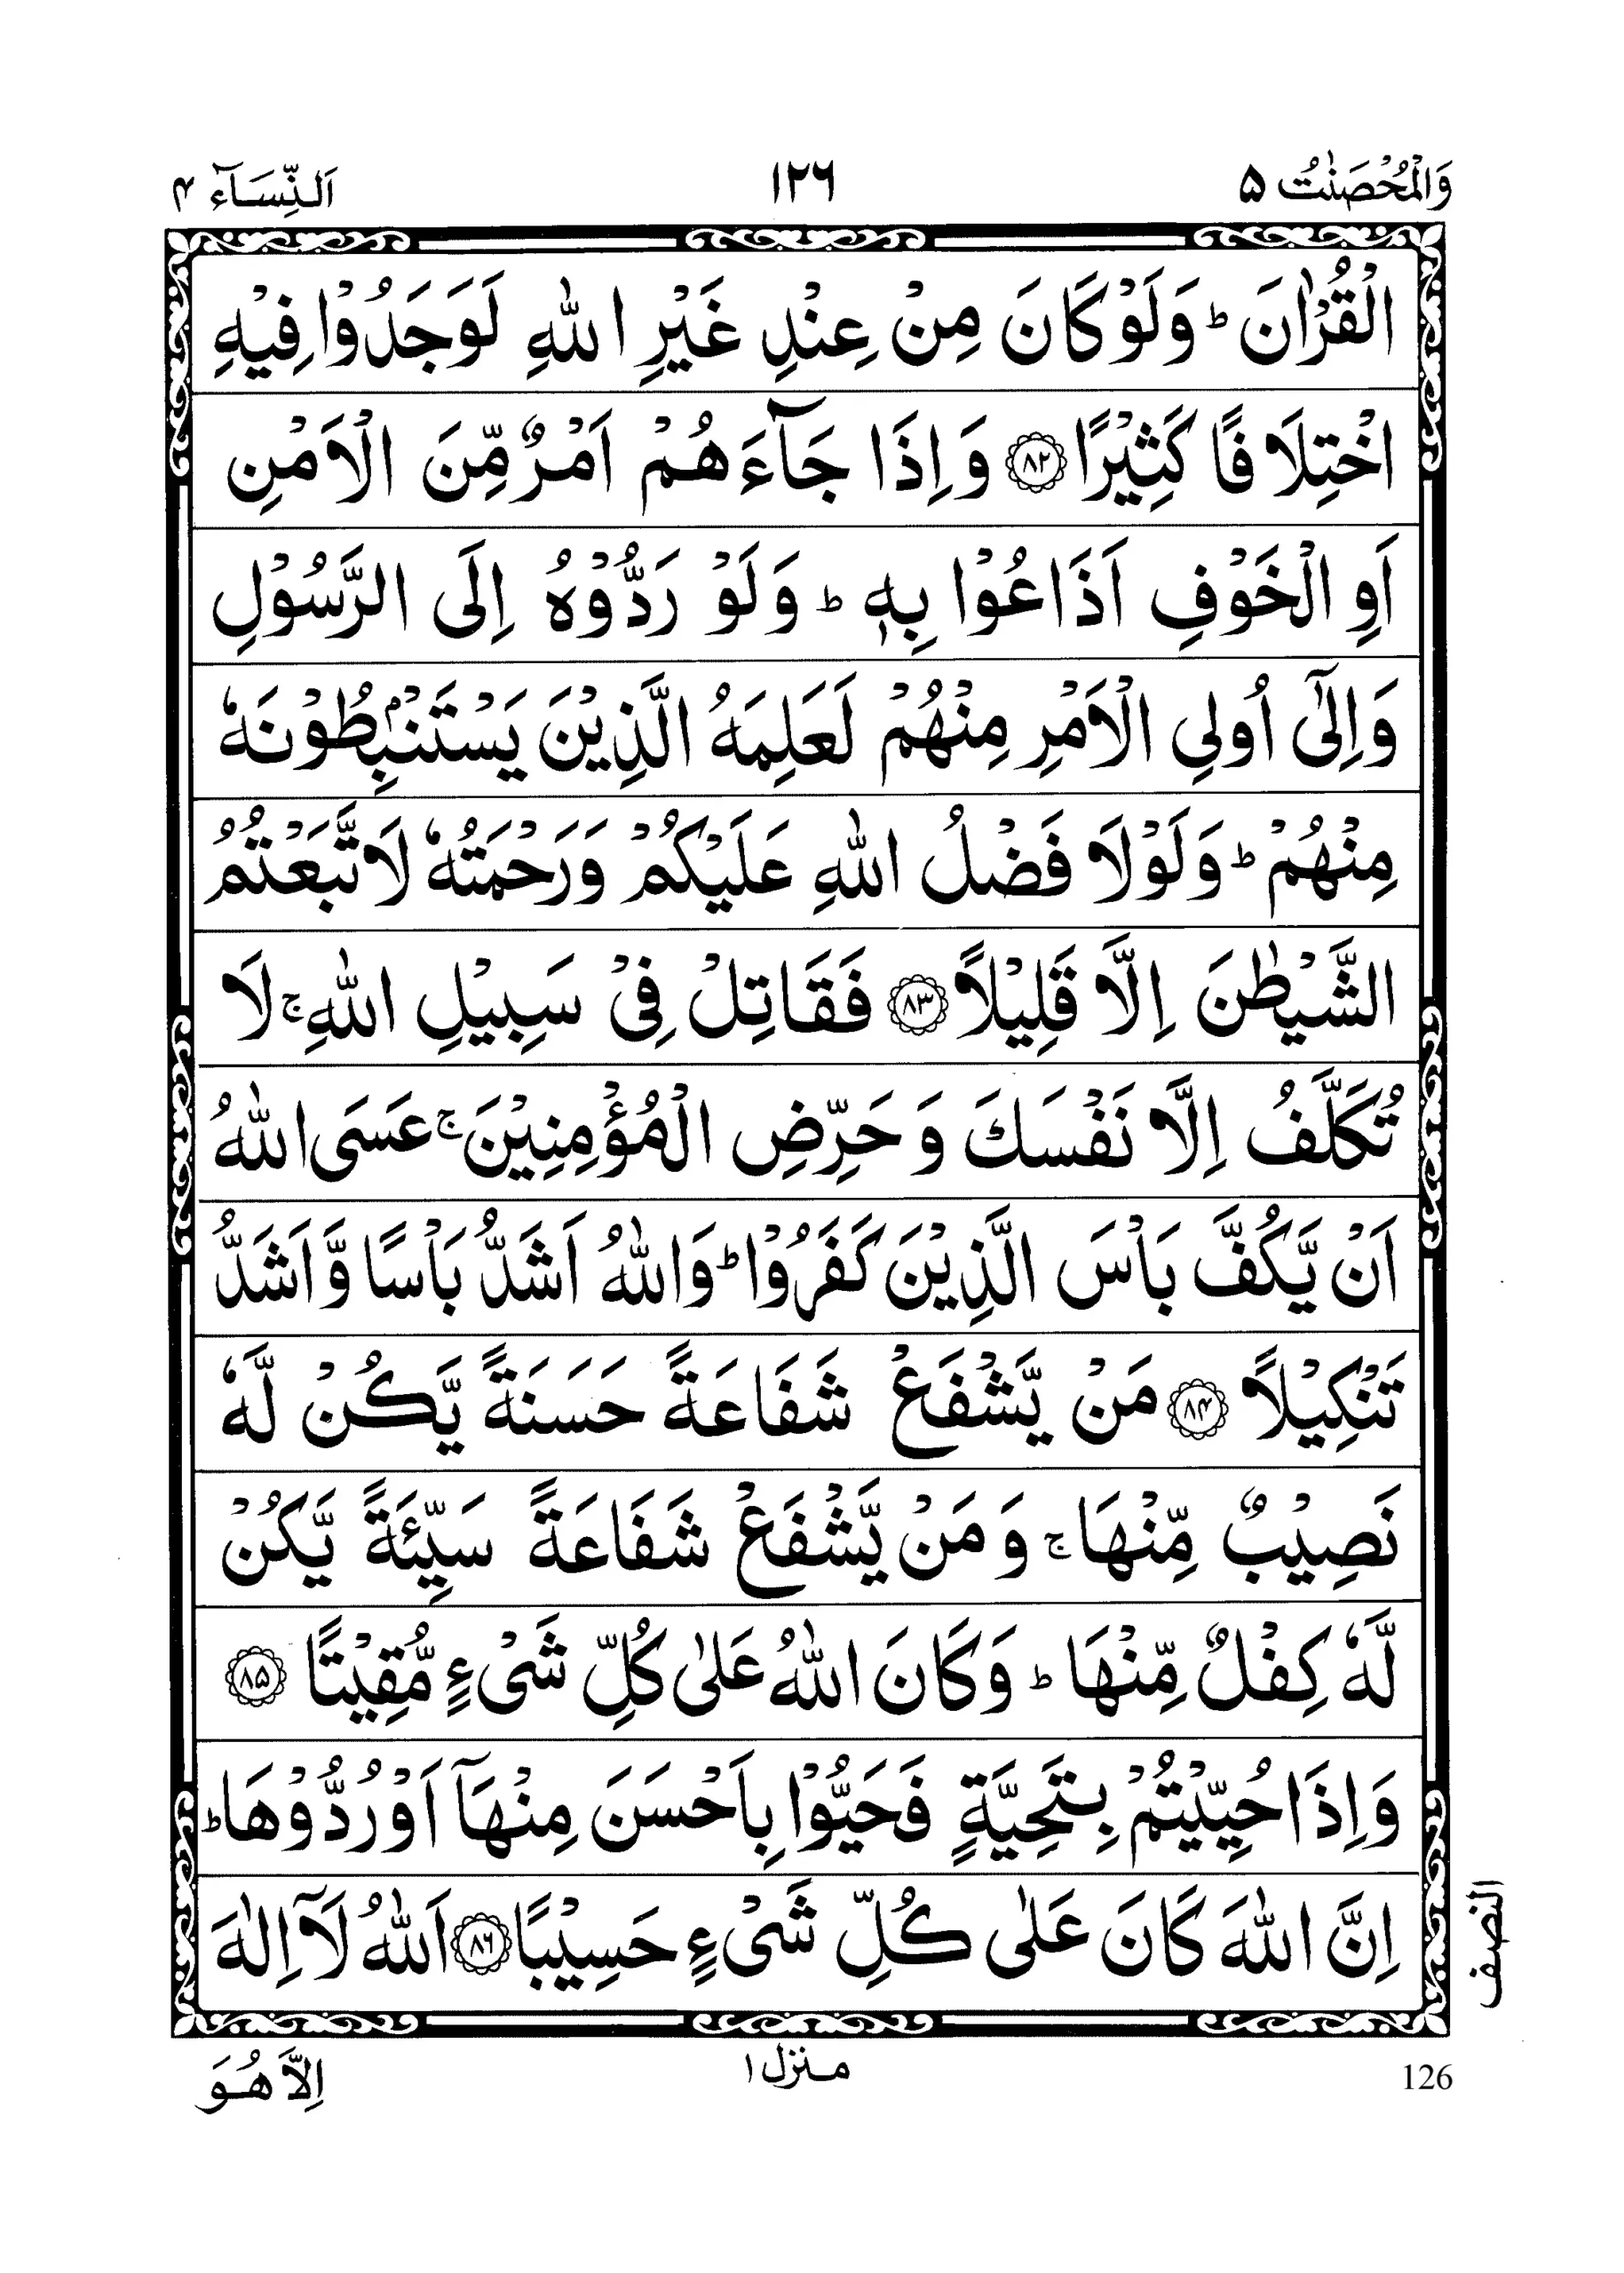 وَالْمُحْصَنٰتُ ۵ ۱۲۶ اَلنِّسَآء ۴
الْقُرْاٰنَ ؕ وَلَوْ كَانَ مِنْ عِنْدِ غَيْرِ اللّٰهِ لَوَجَدُوْا فِيْهِ
اخْتِلَافًا كَثِيْرًا ﴿۸۲﴾ وَاِذَا جَآءَهُمْ اَمْرٌ مِّنَ الْاَمْنِ
اَوِ الْخَوْفِ اَذَاعُوْا بِهٖ ؕ وَلَوْ رَدُّوْهُ اِلَى الرَّسُوْلِ
وَاِلٰٓى اُولِي الْاَمْرِ مِنْهُمْ لَعَلِمَهُ الَّذِيْنَ يَسْتَنْۢبِطُوْنَهٗ
مِنْهُمْ ؕ وَلَوْلَا فَضْلُ اللّٰهِ عَلَيْكُمْ وَرَحْمَتُهٗ لَاتَّبَعْتُمُ
الشَّيْطٰنَ اِلَّا قَلِيْلًا ﴿۸۳﴾ فَقَاتِلْ فِيْ سَبِيْلِ اللّٰهِ ۚ لَا
تُكَلَّفُ اِلَّا نَفْسَكَ وَحَرِّضِ الْمُؤْمِنِيْنَ ۚ عَسَى اللّٰهُ
اَنْ يَّكُفَّ بَاْسَ الَّذِيْنَ كَفَرُوْا ؕ وَاللّٰهُ اَشَدُّ بَاْسًا وَّاَشَدُّ
تَنْكِيْلًا ﴿۸۴﴾ مَنْ يَّشْفَعْ شَفَاعَةً حَسَنَةً يَّكُنْ لَّهٗ
نَصِيْبٌ مِّنْهَا ۚ وَمَنْ يَّشْفَعْ شَفَاعَةً سَيِّئَةً يَّكُنْ
لَّهٗ كِفْلٌ مِّنْهَا ؕ وَكَانَ اللّٰهُ عَلٰى كُلِّ شَيْءٍ مُّقِيْتًا ﴿۸۵﴾
وَاِذَا حُيِّيْتُمْ بِتَحِيَّةٍ فَحَيُّوْا بِاَحْسَنَ مِنْهَآ اَوْ رُدُّوْهَا ؕ
اِنَّ اللّٰهَ كَانَ عَلٰى كُلِّ شَيْءٍ حَسِيْبًا ﴿۸۶﴾ اَللّٰهُ لَآ اِلٰهَ
النصف
126 منزل ۱ اِلَّا هُوَ